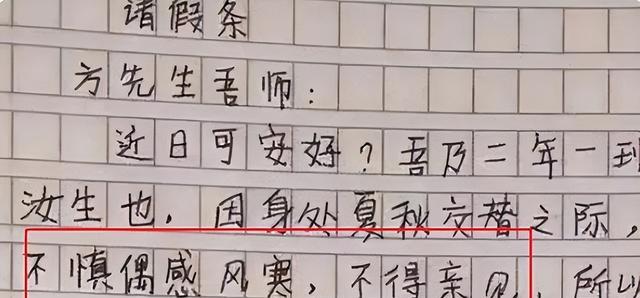 请假条
方先生吾师：
近日可安好？吾乃二年一到
汝生也，因身处夏秋交替之际，
不慎偶感风寒，不得亲见，所以